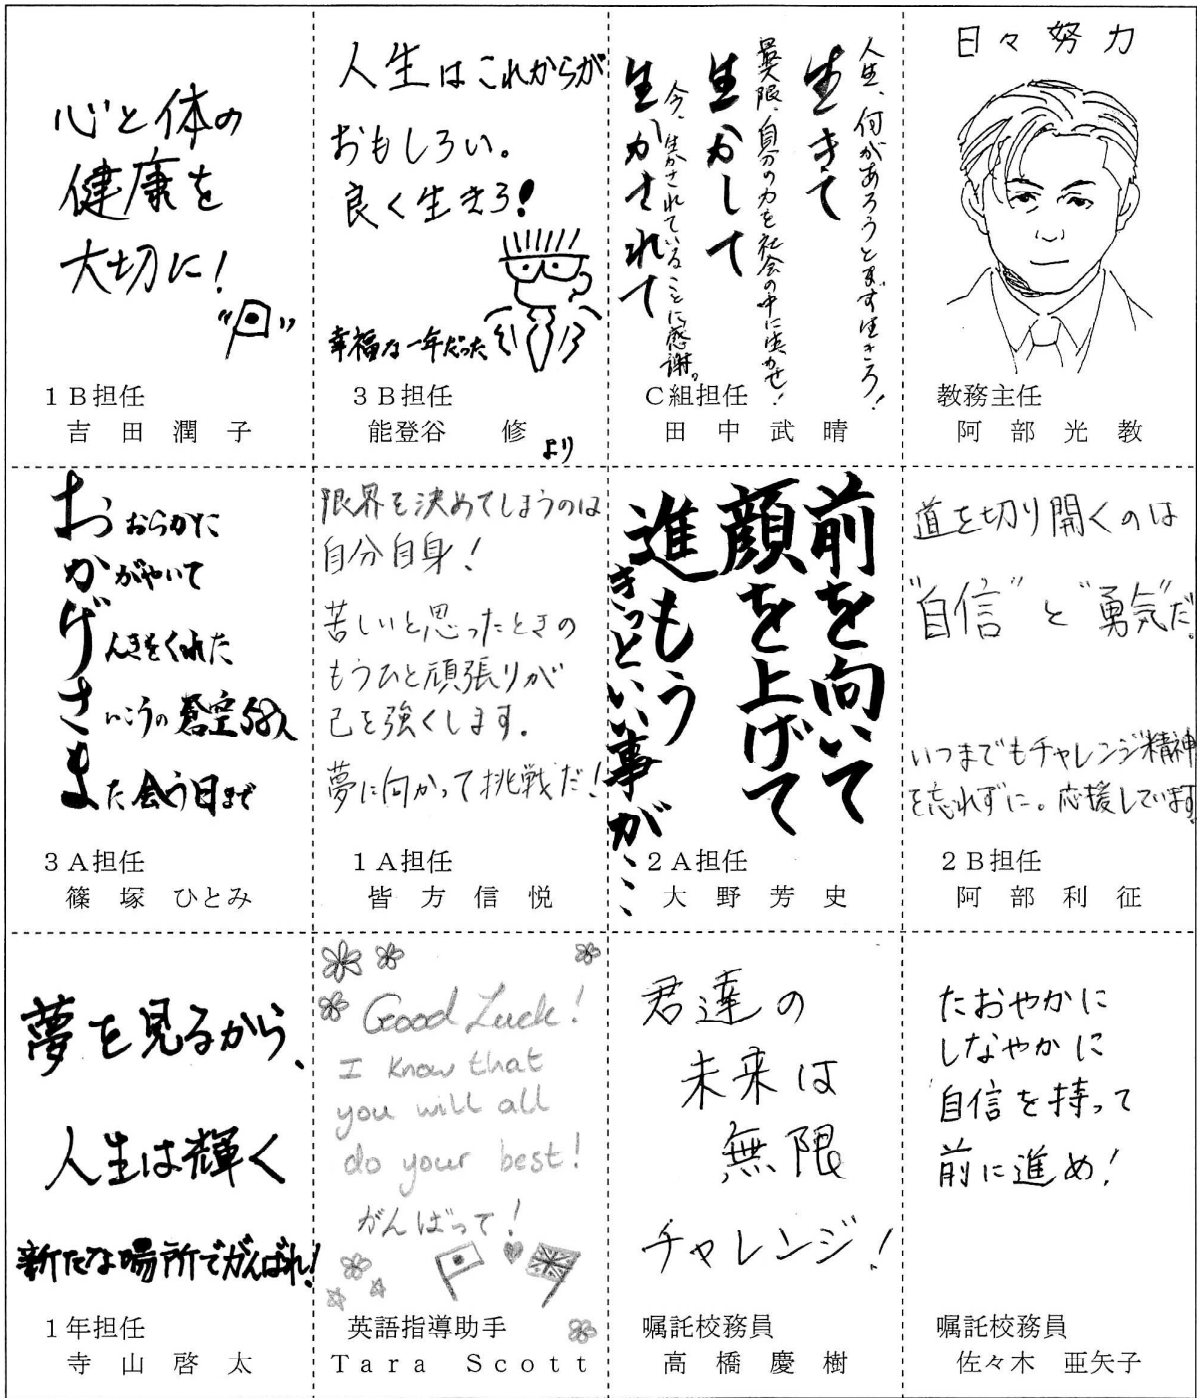 心と体の
健康を
大切に!
1B担任
吉田潤子
人生はこれからが
おもしろい。
良く生きろ!
幸福な一年だった
3B担任
能登谷 修
より
人生、何があろうとまず生きろ!
生きて
最大限、自分の力を社会の中に生かせ!
生かして
今、生かされていることに感謝。
生かされて
C組担任
田中武晴
日々努力
教務主任
阿部光教
おおらかに
かがやいて
げんきをくれた
さいこうの蒼空58人
また会う日まで
3A担任
篠塚ひとみ
限界を決めてしまうのは
自分自身!
苦しいと思ったときの
もうひと頑張りが
己を強くします。
夢に向かって挑戦だ!
1A担任
皆方信悦
前を向いて
顔を上げて
進もう
きっといい事が、、、
2A担任
大野芳史
道を切り開くのは
"自信"と"勇気"だ。
いつまでもチャレンジ精神
を忘れずに。応援しています。
2B担任
阿部利征
夢を見るから、
人生は輝く
新たな場所でがんばれ!
1年担任
寺山啓太
Good Luck!
I know that
you will all
do your best!
がんばって!
英語指導助手
Tara Scott
君達の
未来は
無限
チャレンジ!
嘱託校務員
高橋慶樹
たおやかに
しなやかに
自信を持って
前に進め!
嘱託校務員
佐々木 亜矢子